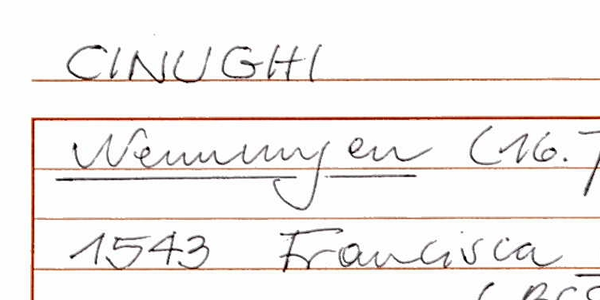 CINUGHI
Nennungen (16.
1543 Francisca